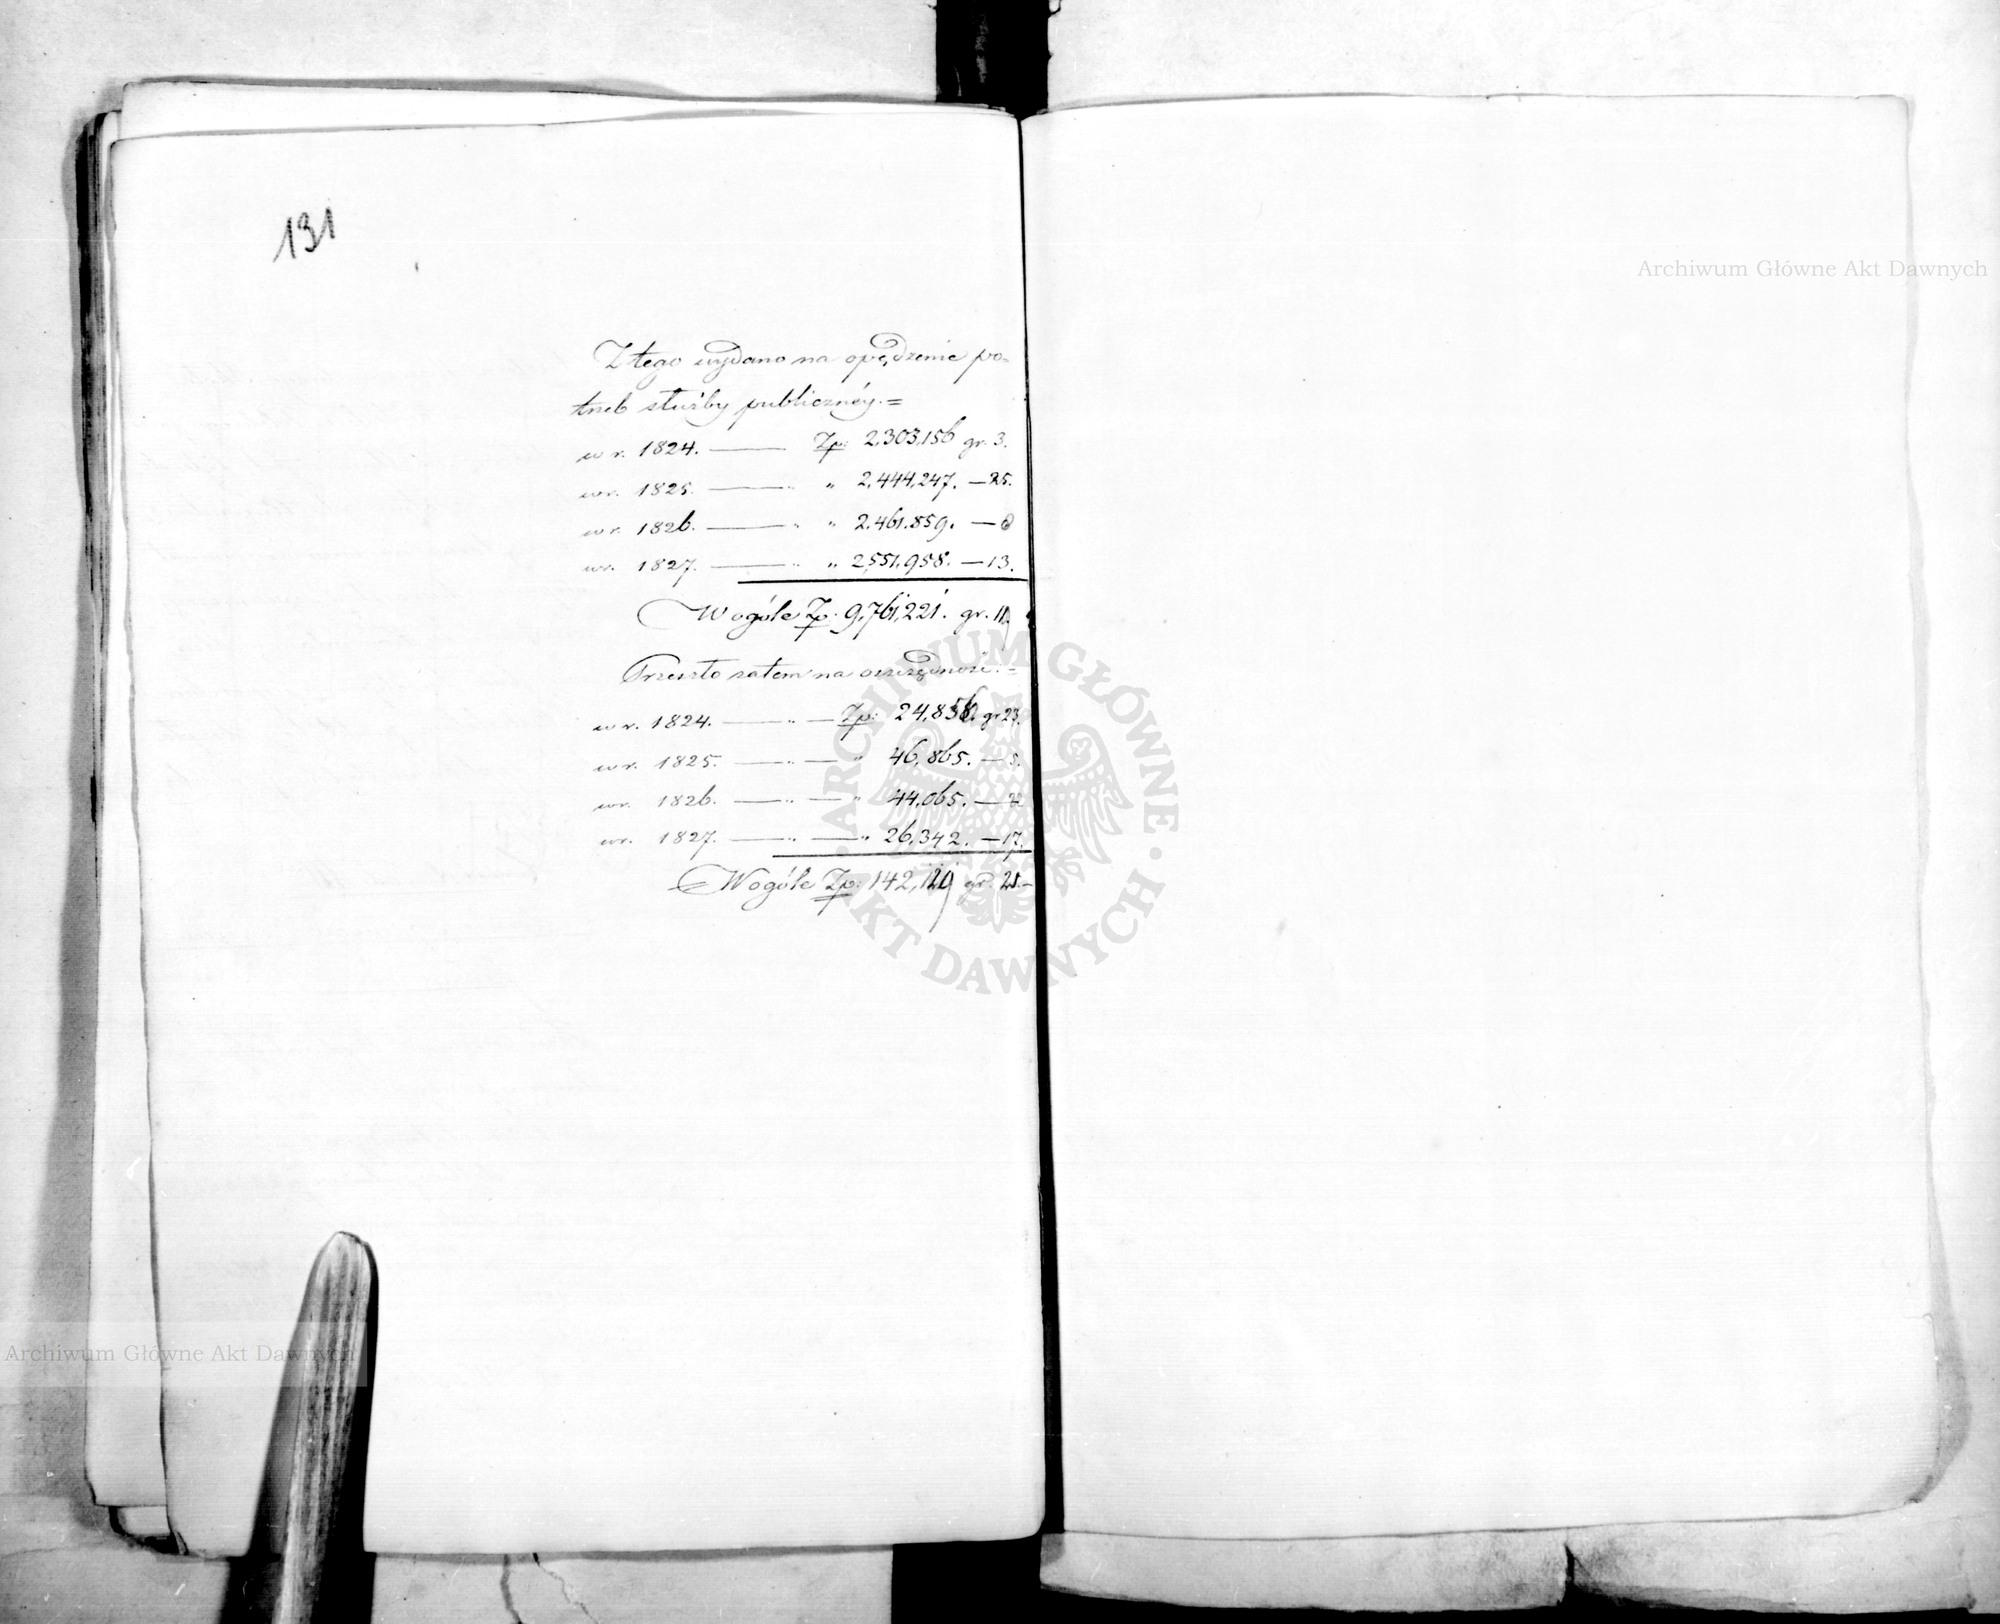 131
Z tego wydano na opędzenie po-
trzeb służby publicznéy.=
w r. 1824. — Zp: 2,303,156 gr. 3.
w r. 1825. — " 2,444,247. — 25.
w r. 1826. — " " 2.461.859. —
w r. 1827. — " " 2,551,958. — 13.
W ogóle Zp. 9,761,221. gr. 11
Przeszło zatem na oszczędność.=
w r. 1824. — " — Zp: 24,8 gr 23.
w r. 1825. — " — " 46,865. — 5.
w r. 1826. — " — " 44,065. —
w r. 1827. — " — " 26,342. — 17.
W ogóle Zp: 142,129 gr.
Archiwum Główne Akt Dawnych
ARCHIWUM GŁÓWNE AKT DAWNYCH
Archiwum Główne Akt Dawnych